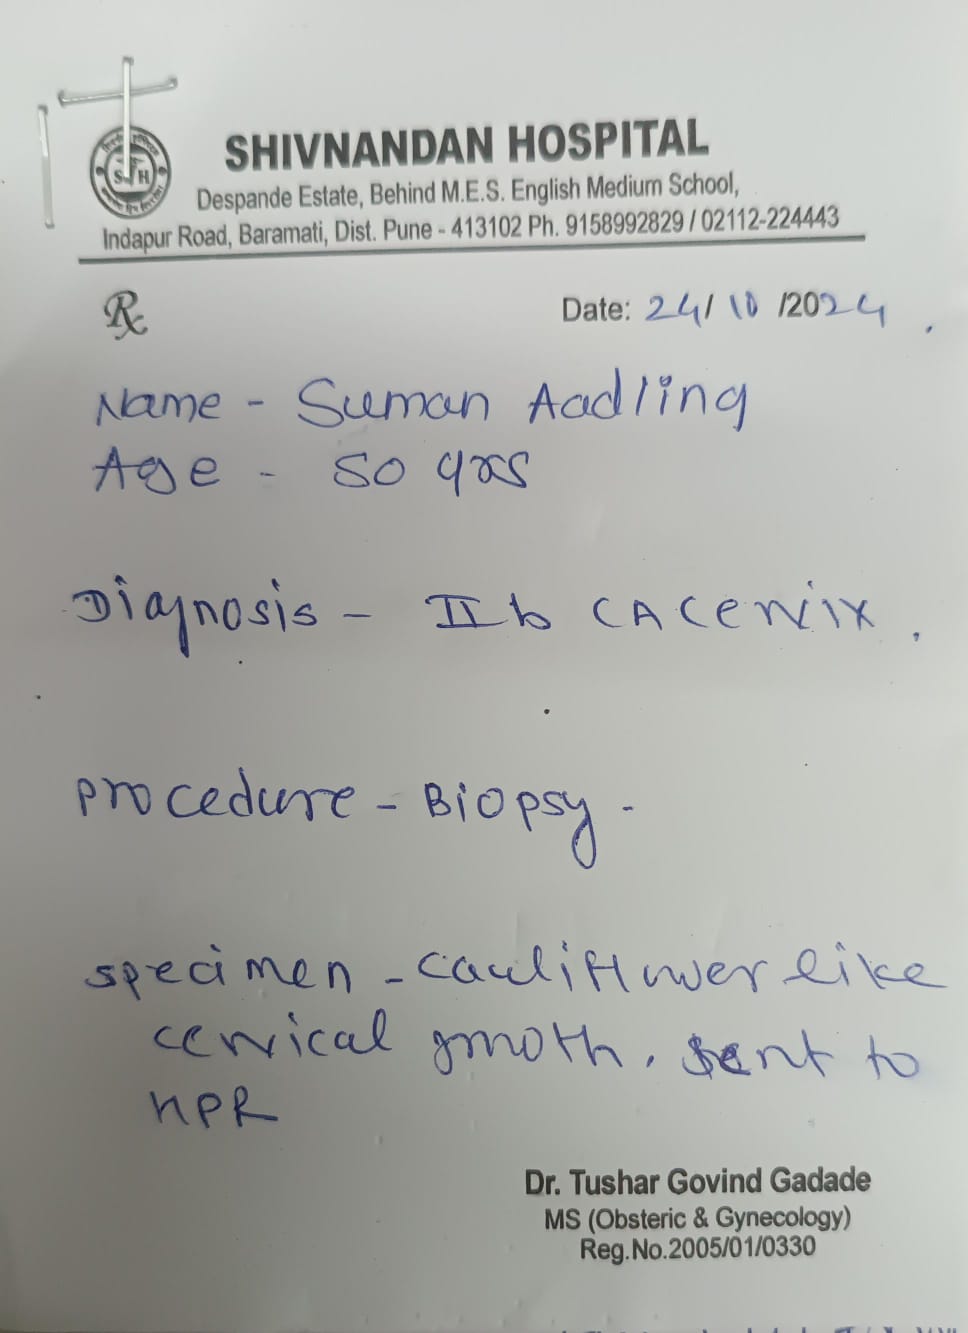 S H
SHIVNANDAN HOSPITAL
Despande Estate, Behind M.E.S. English Medium School,
Indapur Road, Baramati, Dist. Pune - 413102 Ph. 9158992829 / 02112-224443
Rx
Date: 24/ 10 /2024
Name - Suman Aadling
Age - 50 yrs
Diagnosis - IIb CA Cervix.
Procedure - Biopsy -
specimen - cauliflower like
cervical growth. sent to
HPR
Dr. Tushar Govind Gadade
MS (Obsteric & Gynecology)
Reg.No.2005/01/0330